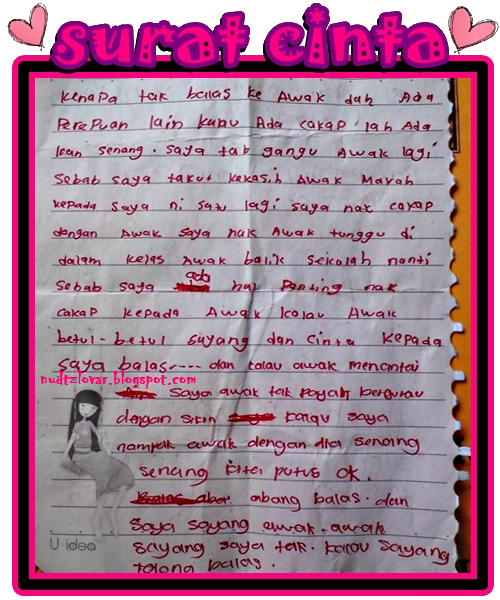 surat cinta
kenapa tak balas ke Awak dah Ada
Perepuan lain kalau Ada cakap lah Ada
kan senang. saya tak gangu Awak lagi
sebab saya takut kekasih Awak Marah
kepada saya ni satu lagi saya nak cakap
dengan Awak saya nak Awak tunggu di
dalam kelas Awak balik sekolah nanti
sebab saya ada hal Penting nak
cakap kepada Awak kalau Awak
betul-betul sayang dan cinta kepada
saya balas---- dan kalau awak mencintai
nudtzlovar.blogspot.com
saya awak tak payah bergurau
dengan kalau saya
nampak awak dengan dia senang
senang kita putus ok.
abang balas. dan
saya sayang awak. awak
U-idea
sayang saya tak. kalau sayang
tolong balas.